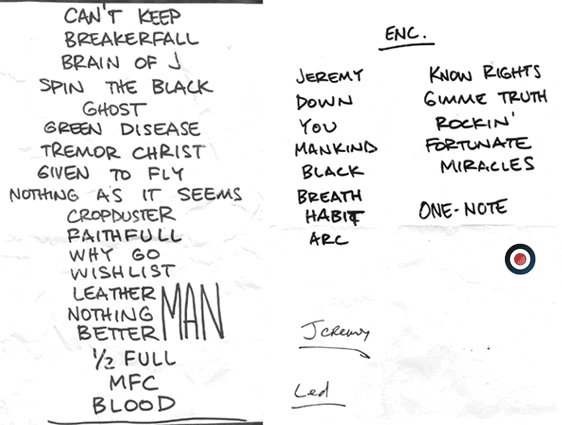 CAN'T KEEP
BREAKERFALL
BRAIN OF J
SPIN THE BLACK
GHOST
GREEN DISEASE
TREMOR CHRIST
GIVEN TO FLY
NOTHING AS IT SEEMS
CROPDUSTER
FAITHFULL
WHY GO
WISHLIST
LEATHER
NOTHING MAN
BETTER
1/2 FULL
MFC
BLOOD
ENC.
JEREMY
DOWN
YOU
MANKIND
BLACK
BREATH
HABIT
ARC
KNOW RIGHTS
GIMME TRUTH
ROCKIN'
FORTUNATE
MIRACLES
ONE-NOTE
Jeremy
Led